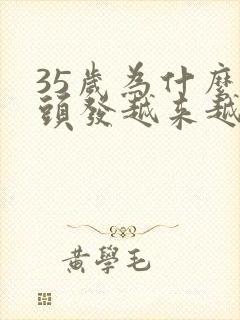 35歲為什麼
頭發越来越
黃學毛